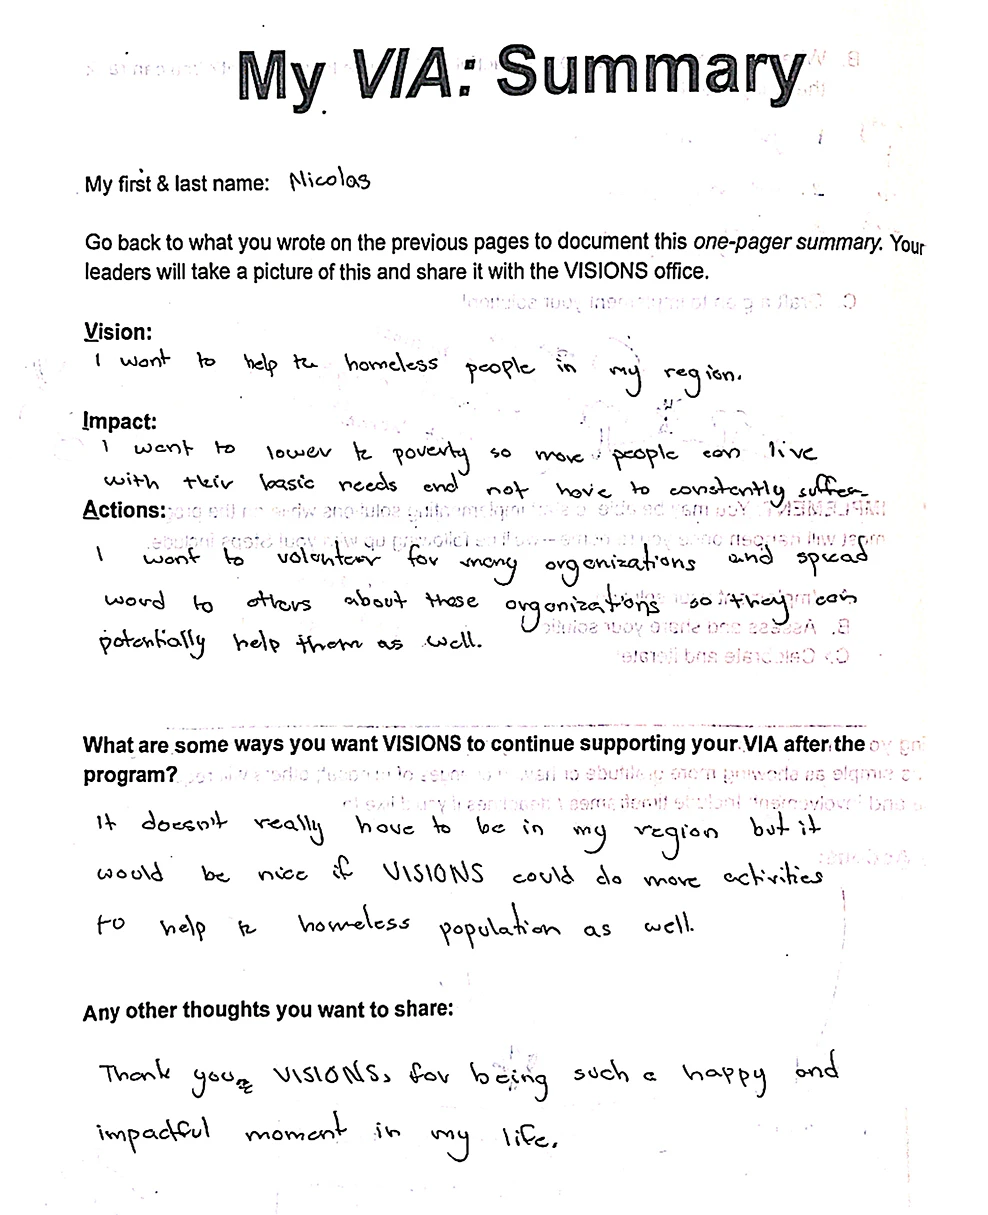 My VIA: Summary
My first & last name: Nicolas
Go back to what you wrote on the previous pages to document this one-pager summary. Your
leaders will take a picture of this and share it with the VISIONS office.
Vision:
I want to help the homeless people in my region.
Impact:
I want to lower the poverty so more people can live
with their basic needs and not have to constantly suffer.
Actions:
I want to volunteer for many organizations and spread
word to others about those organizations so they can
potentially help them as well.
What are some ways you want VISIONS to continue supporting your VIA after the
program?
It doesn't really have to be in my region but it
would be nice if VISIONS could do more activities
to help the homeless population as well.
Any other thoughts you want to share:
Thank you, VISIONS, for being such a happy and
impactful moment in my life.